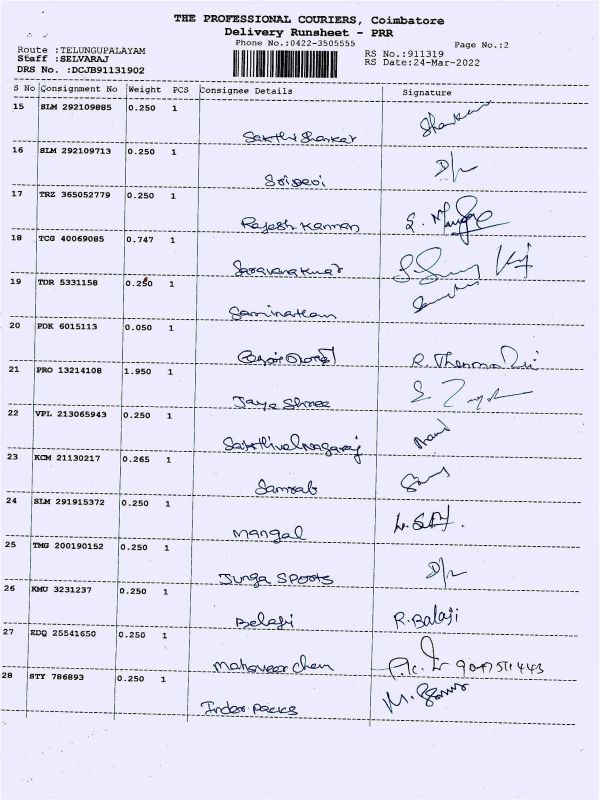 THE PROFESSIONAL COURIERS, Coimbatore
Delivery Runsheet - PRR
Phone No.:0422-3505555 Page No.:2
Route :TELUNGUPALAYAM RS No.:911319
Staff :SELVARAJ RS Date:24-Mar-2022
DRS No. :DCJB91131902
S No Consignment No Weight PCS Consignee Details Signature
15 SLM 292109885 0.250 1
Sakthi Shankar Shankar
16 SLM 292109713 0.250 1
Sridevi D/r
17 TRZ 365052779 0.250 1
Rajesh Kannan
18 TCG 40069085 0.747 1
Saravanakumar
19 TDR 5331158 0.250 1
Saminathan
20 PDK 6015113 0.050 1
R.
21 PRO 13214108 1.950 1
Jaya Shree
22 VPL 213065943 0.250 1
Sakthivel Nagaraj Anand
23 KCM 21130217 0.265 1
24 SLM 291915372 0.250 1
Mangal
25 TMG 200190152 0.250 1
Junga Sports D/r
26 KMU 3231237 0.250 1
Belaji R. Balaji
27 EDQ 25541650 0.250 1
Mahaveer chen
28 STY 786893 0.250 1
Inder Packs M.